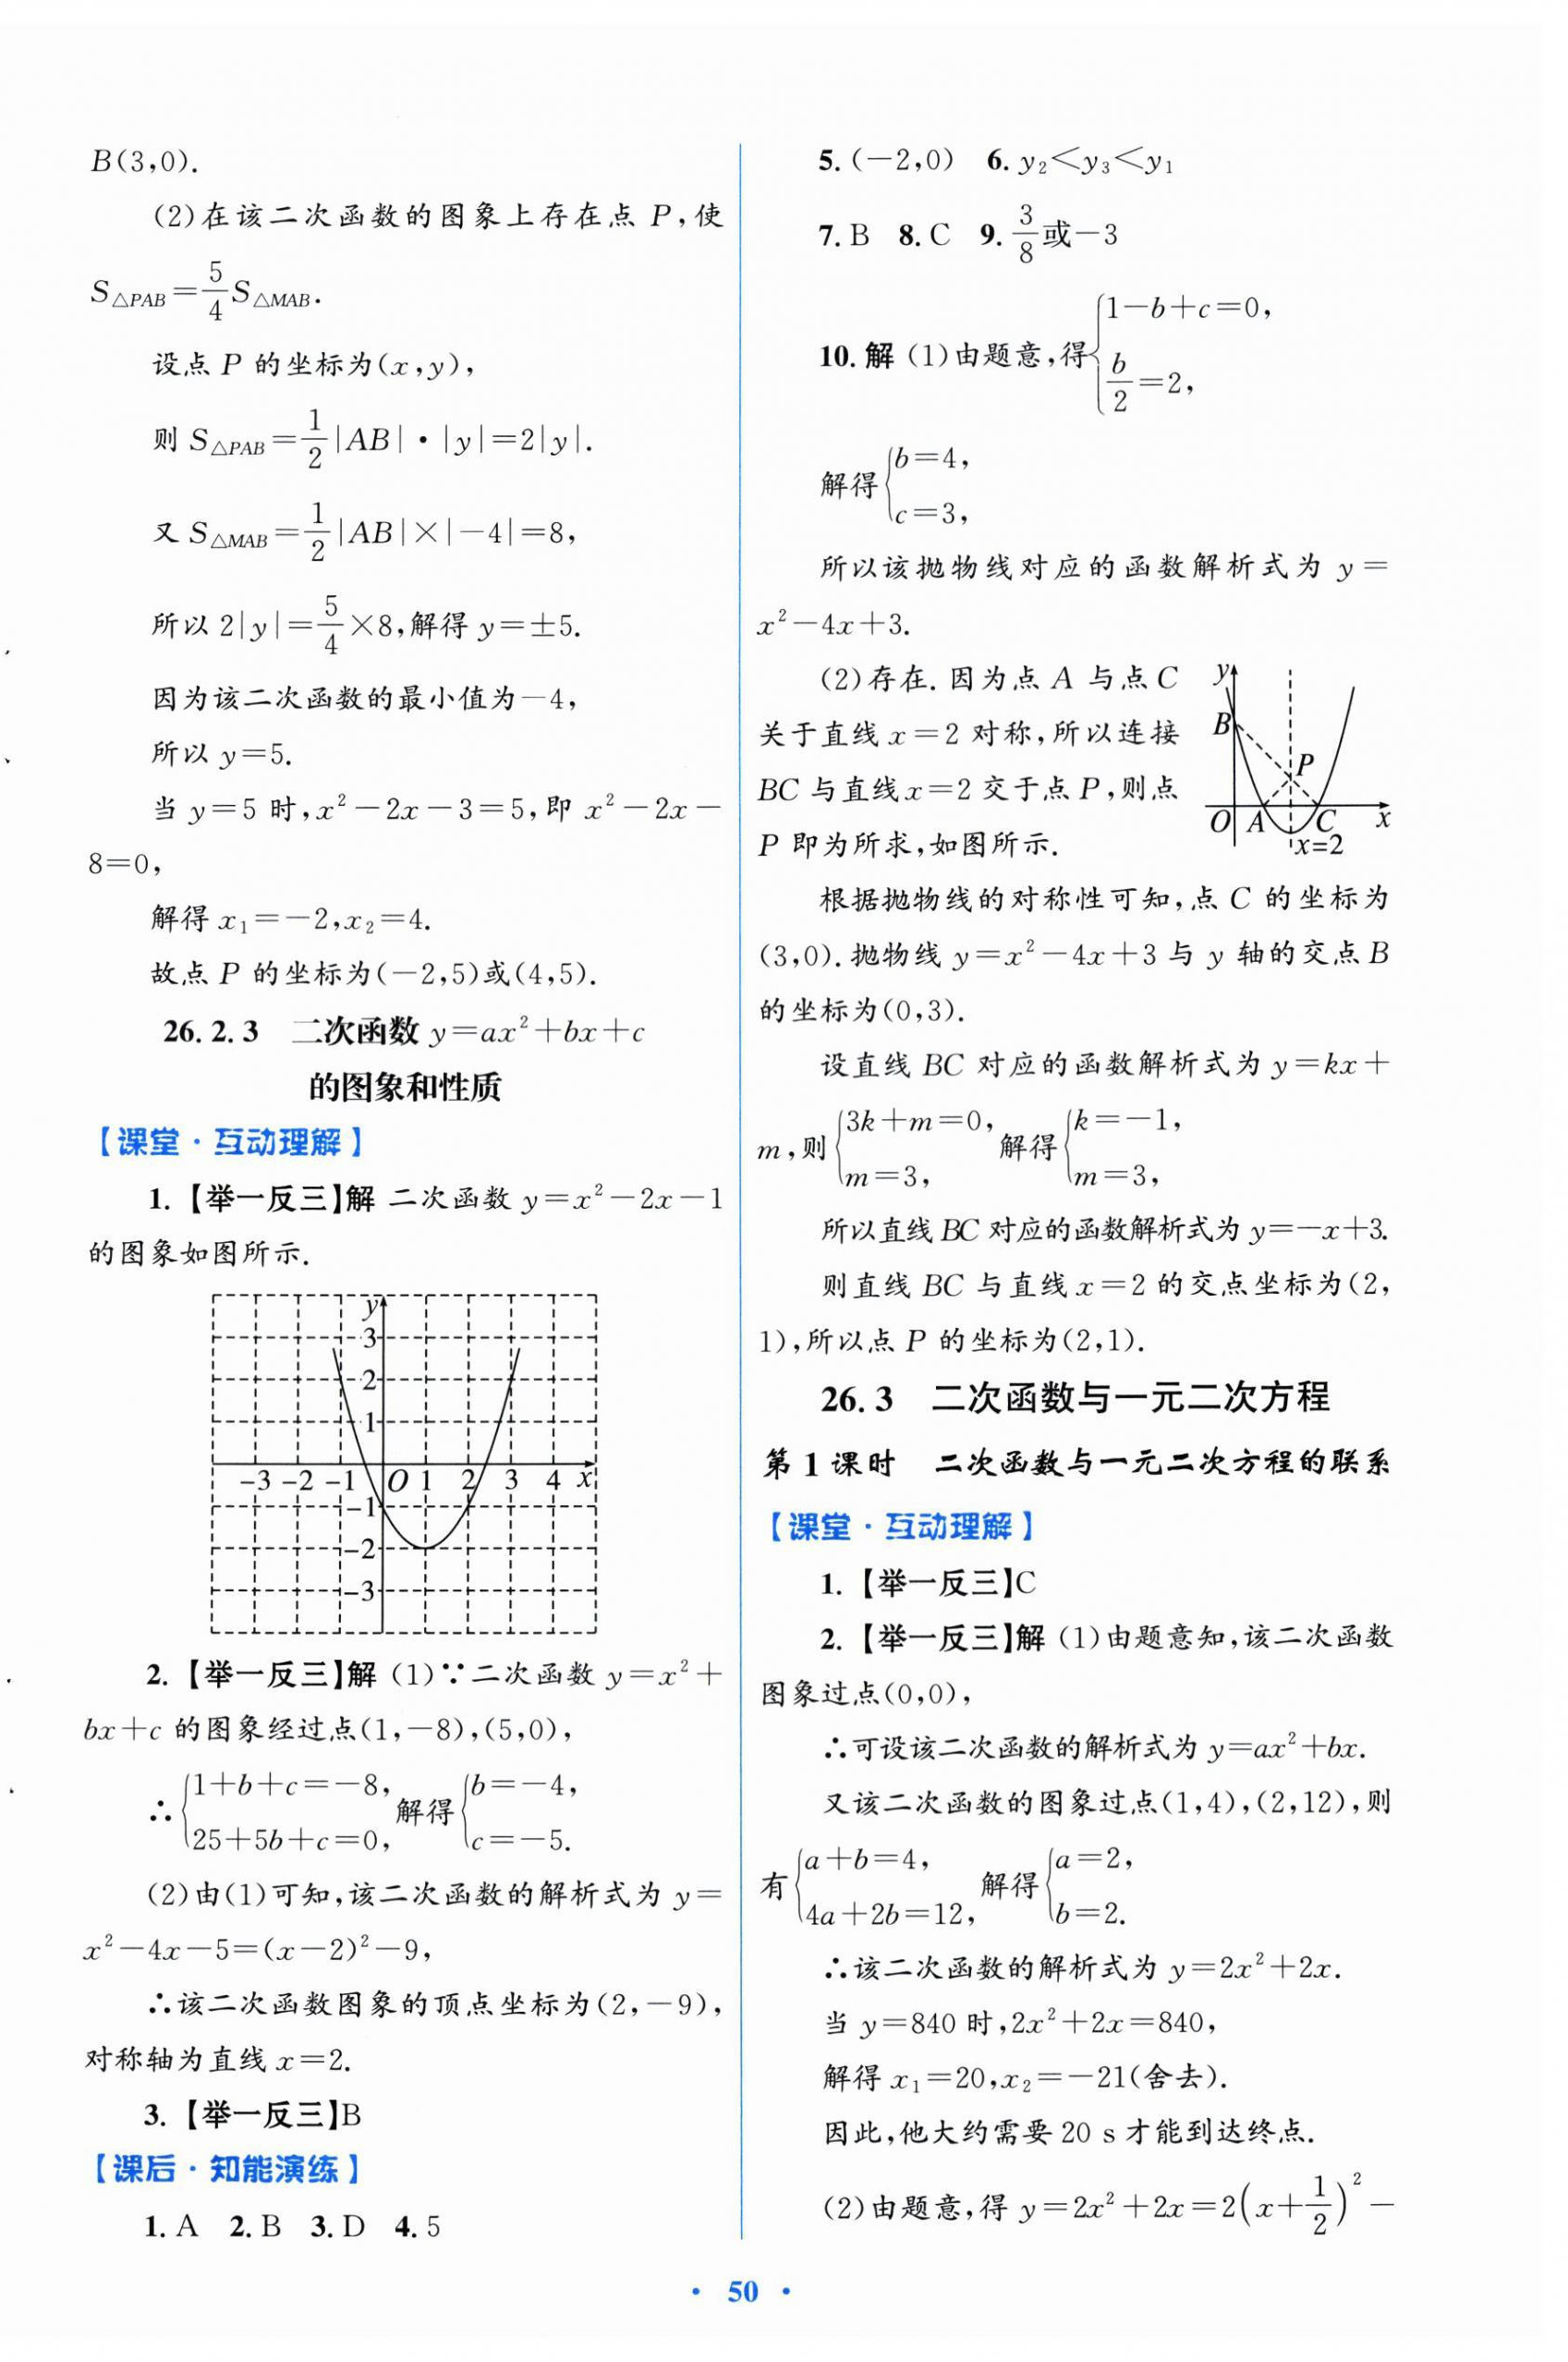 B(3,0).
(2)在该二次函数的图象上存在点 P,使
S△PAB=5/4 S△MAB.
设点 P 的坐标为(x,y),
则 S△PAB=1/2|AB|·|y|=2|y|.
又 S△MAB=1/2|AB|×|-4|=8,
所以 2|y|=5/4×8,解得 y=±5.
因为该二次函数的最小值为-4,
所以 y=5.
当 y=5 时,x²-2x-3=5,即 x²-2x-
8=0,
解得 x₁=-2,x₂=4.
故点 P 的坐标为(-2,5)或(4,5).
26.2.3 二次函数 y=ax²+bx+c
的图象和性质
【课堂·互动理解】
1.【举一反三】解 二次函数 y=x²-2x-1
的图象如图所示.
y
3
2
1
-3 -2 -1 O 1 2 3 4 x
-1
-2
-3
2.【举一反三】解 (1)∵二次函数 y=x²+
bx+c 的图象经过点(1,-8),(5,0),
∴{1+b+c=-8, 25+5b+c=0, 解得{b=-4, c=-5.
(2)由(1)可知,该二次函数的解析式为 y=
x²-4x-5=(x-2)²-9,
∴该二次函数图象的顶点坐标为(2,-9),
对称轴为直线 x=2.
3.【举一反三】B
【课后·知能演练】
1. A 2. B 3. D 4. 5
5. (-2,0) 6. y₂<y₃<y₁
7. B 8. C 9. 3/8或-3
10. 解 (1)由题意,得{1-b+c=0, b/2=2,
解得{b=4, c=3,
所以该抛物线对应的函数解析式为 y=
x²-4x+3.
(2)存在.因为点 A 与点 C
关于直线 x=2 对称,所以连接
BC 与直线 x=2 交于点 P,则点
P 即为所求,如图所示.
y
B
P
O A C x
x=2
根据抛物线的对称性可知,点 C 的坐标为
(3,0).抛物线 y=x²-4x+3 与 y 轴的交点 B
的坐标为(0,3).
设直线 BC 对应的函数解析式为 y=kx+
m,则{3k+m=0, m=3, 解得{k=-1, m=3,
所以直线 BC 对应的函数解析式为 y=-x+3.
则直线 BC 与直线 x=2 的交点坐标为(2,
1),所以点 P 的坐标为(2,1).
26.3 二次函数与一元二次方程
第 1 课时 二次函数与一元二次方程的联系
【课堂·互动理解】
1.【举一反三】C
2.【举一反三】解 (1)由题意知,该二次函数
图象过点(0,0),
∴可设该二次函数的解析式为 y=ax²+bx.
又该二次函数的图象过点(1,4),(2,12),则
有{a+b=4, 4a+2b=12, 解得{a=2, b=2.
∴该二次函数的解析式为 y=2x²+2x.
当 y=840 时,2x²+2x=840,
解得 x₁=20,x₂=-21(舍去).
因此,他大约需要 20 s 才能到达终点.
(2)由题意,得 y=2x²+2x=2(x+1/2)²-
· 50 ·